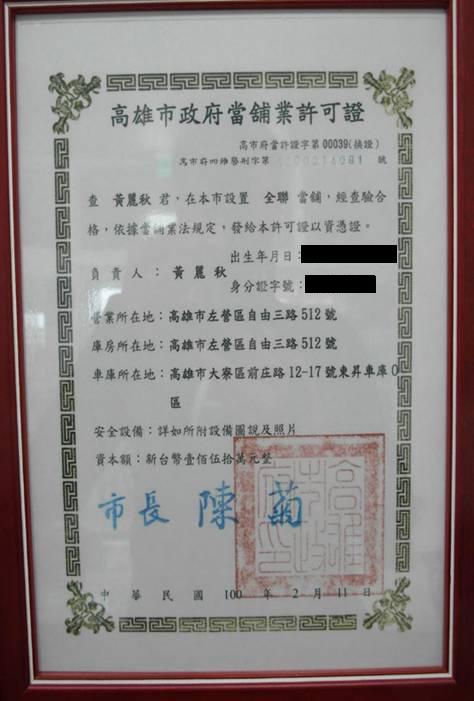 高雄市政府當舖業許可證
高市府當許證字第00039(換證)
高市府四維警刑字第1000014081 號
查 黃麗秋 君，在本市設置 全聯 當舖，經查驗合
格，依據當舖業法規定，發給本許可證以資憑證。
出生年月日：
負責人：黃麗秋
身分證字號：
營業所在地：高雄市左營區自由三路512號
庫房所在地：高雄市左營區自由三路512號
車庫所在地：高雄市大寮區前庄路12-17號東昇車庫O
區
安全設備：詳如所附設備圖說及照片
資本額：新台幣壹佰伍拾萬元整
市長 陳菊
高雄
市政
府印
中華民國 100 年 2 月 11 日